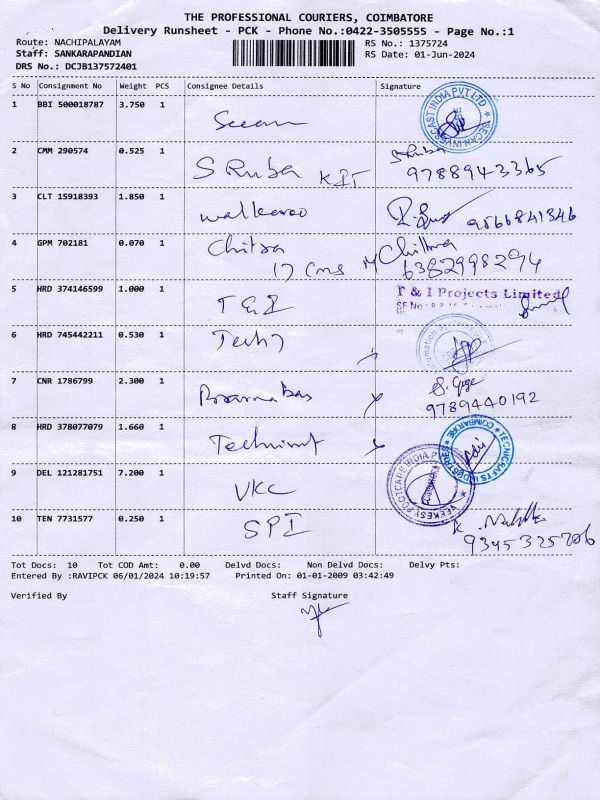 THE PROFESSIONAL COURIERS, COIMBATORE
Delivery Runsheet - PCK - Phone No.:0422-3505555 - Page No.:1
Route: NACHIPALAYAM RS No.: 1375724
Staff: SANKARAPANDIAN RS Date: 01-Jun-2024
DRS No.: DCJB137572401
S No Consignment No Weight PCS Consignee Details Signature
1 BBI 500018787 3.750 1 INVERCAST INDIA PVT LTD
2 CMM 290574 0.525 1 SRuba KIT Sruba
9788943365
3 CLT 15918393 1.850 1 9566841346
4 GPM 702181 0.070 1 Chitra Chithra
17 Cms 6382998294
5 HRD 374146599 1.000 1 T & I T & I Projects Limited
6 HRD 745442211 0.530 1 Tech
7 CNR 1786799 2.300 1 9789440192
8 HRD 378077079 1.660 1 TECHNICRAFTS INDUSTRIES COIMBATORE
9 DEL 121281751 7.200 1 VKC VEEKESY FOOTCARE INDIA
10 TEN 7731577 0.250 1 SPI
Tot Docs: 10 Tot COD Amt: 0.00 Delvd Docs: Non Delvd Docs: Delvy Pts:
Entered By :RAVIPCK 06/01/2024 10:19:57 Printed On: 01-01-2009 03:42:49
Verified By Staff Signature